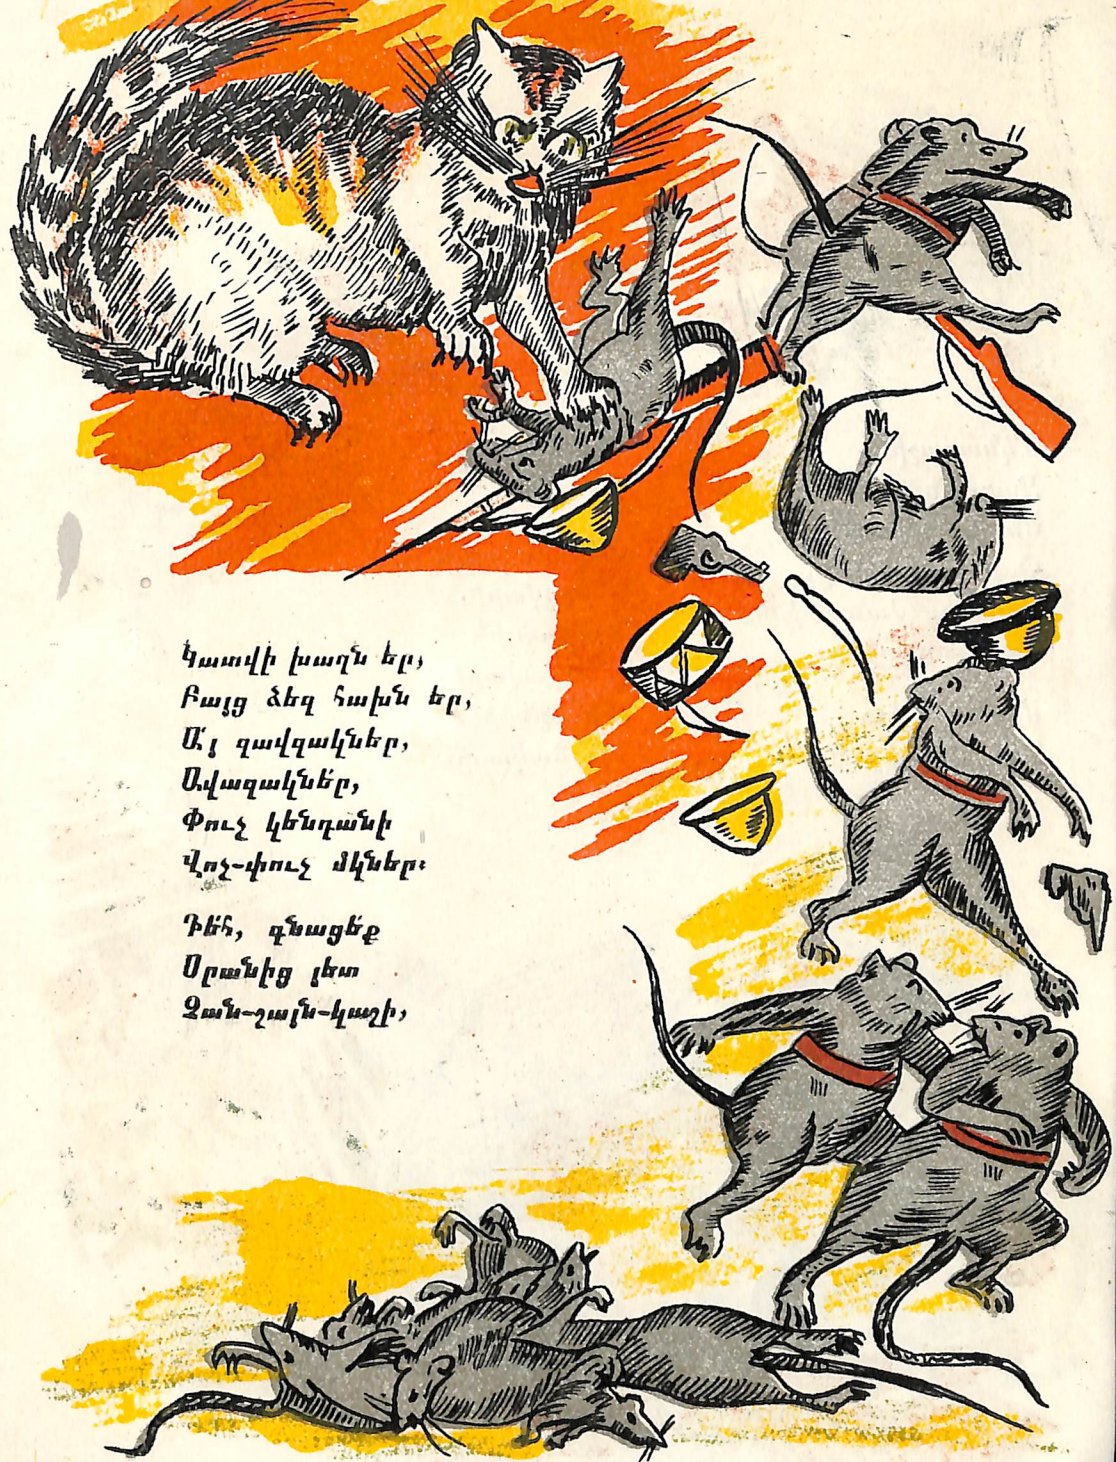 Կատվի խաղն եր,
Բայց ձեզ հախն եր,
Ա՛յ զավզակներ,
Ավազակնե՛ր,
Փուչ կենդանի
Վոչ-փուչ մկներ։
Դե՛հ, գնացե՛ք
Սրանից յետ
Չան-շայն-կաշի,